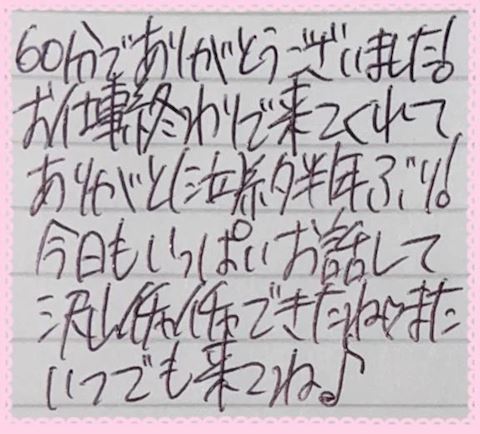 60分でありがとうございました!
お仕事終わりで来てくれて
ありがと 約半年ぶり!
今日もいっぱいお話して
沢山イチャイチャできたね また
いつでも来てね♪